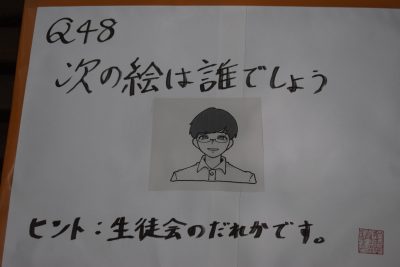 Q48
次の絵は誰でしょう
ヒント：生徒会のだれかです。